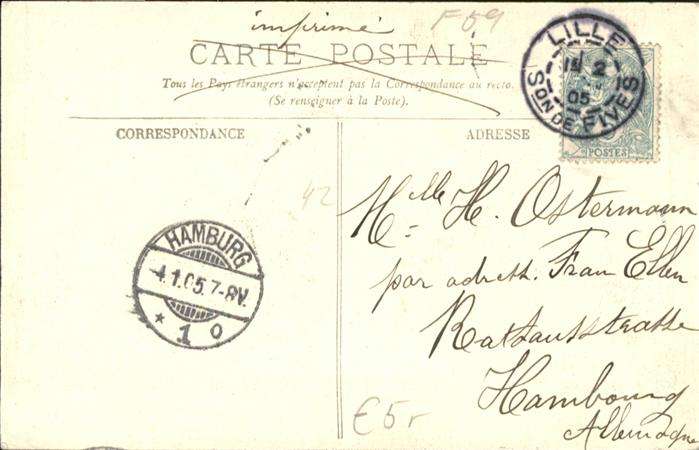 imprimé
F 09
CARTE POSTALE
Tous les Pays étrangers n'acceptent pas la Correspondance au recto.
(Se renseigner à la Poste).
CORRESPONDANCE
ADRESSE
LILLE
2
05
SON DE FIVES
POSTES
42
HAMBURG
4.1.05.7-8V.
* 1 o
Mlle H. Ostermann
par adress. Frau Ellen
Rathausstrasse
Hambourg
Allemagne
€5